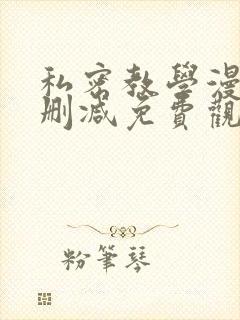 私密教學漫
刪減免費觀
粉筆琴